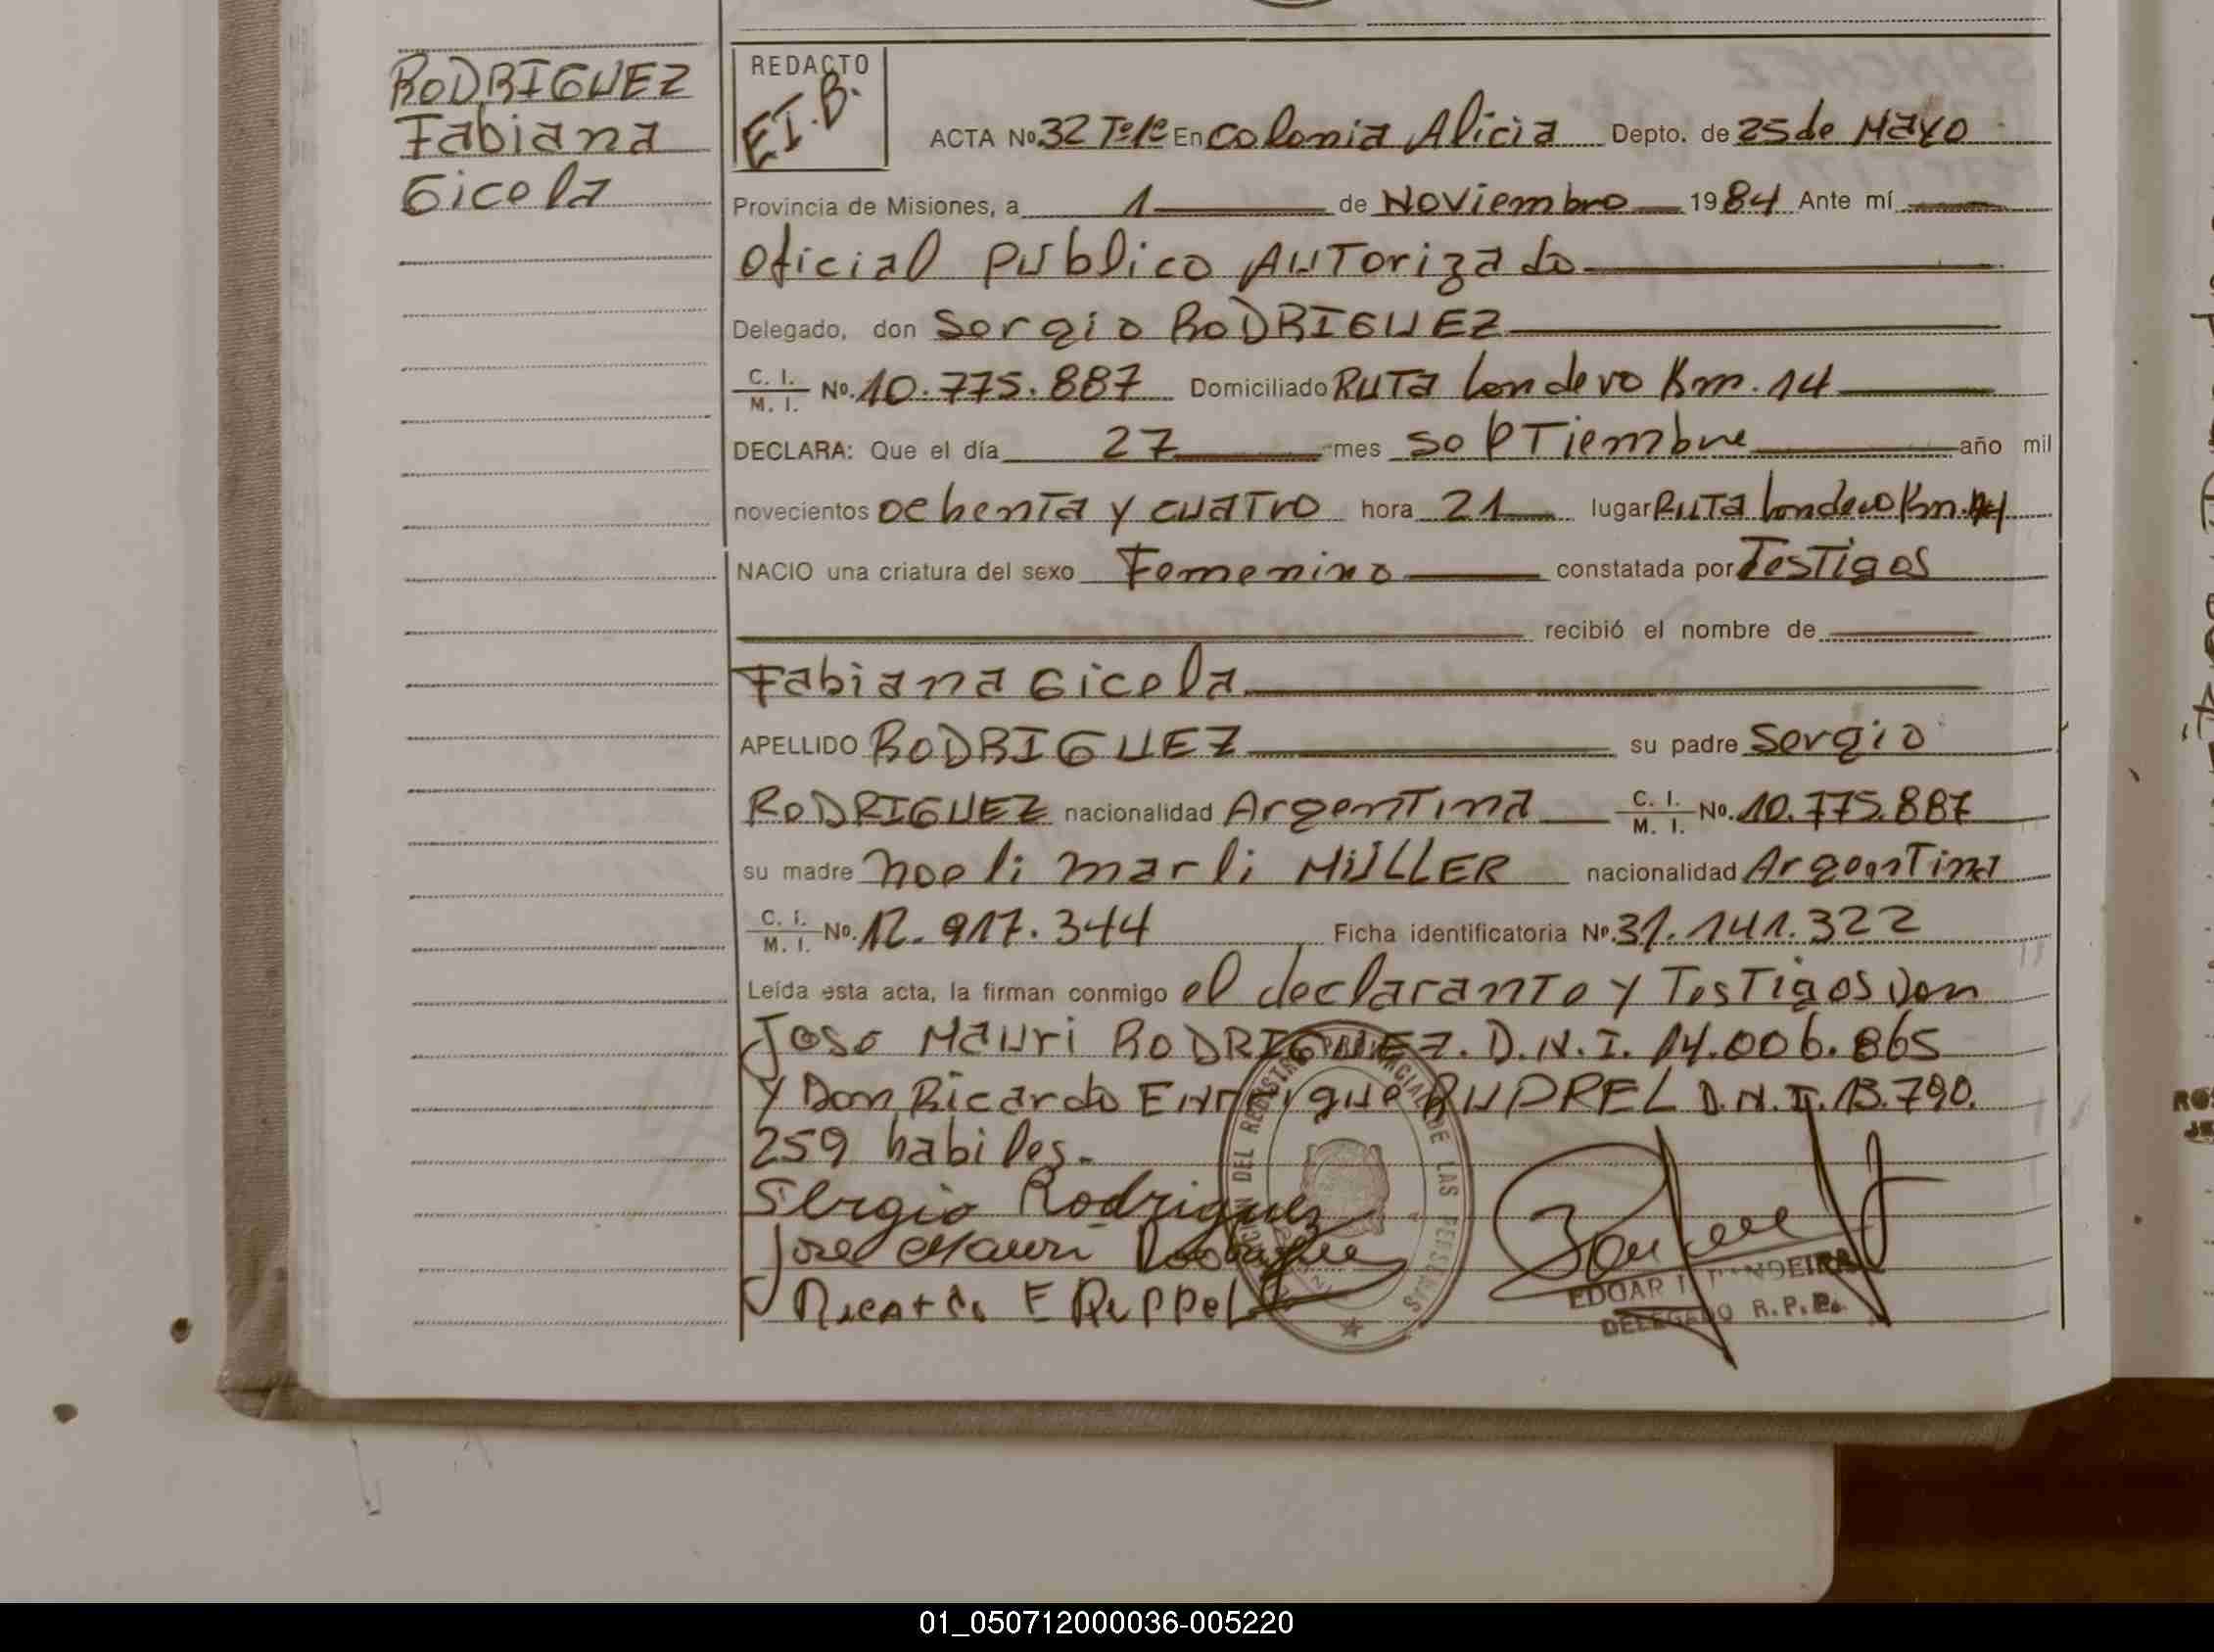 RODRIGUEZ
Fabiana
Gicela
REDACTO
E.I.B.
ACTA Nº 32 Tº1º En Colonia Alicia Depto. de 25 de Mayo
Provincia de Misiones, a 1 de Noviembre 1984 Ante mí
Oficial Público Autorizado
Delegado, don Sergio RODRIGUEZ
C. I. / M. I. Nº. 10.775.887 Domiciliado Ruta Londero Km. 14
DECLARA: Que el día 27 mes septiembre año mil
novecientos ochenta y cuatro hora 21 lugar Ruta Londero Km. 14
NACIO una criatura del sexo Femenino constatada por Testigos
recibió el nombre de
Fabiana Gicela
APELLIDO RODRIGUEZ su padre Sergio
RODRIGUEZ nacionalidad Argentina C. I. / M. I. Nº. 10.775.887
su madre Noeli Marli MÜLLER nacionalidad Argentina
C. I. / M. I. Nº. 12.917.344 Ficha identificatoria Nº. 31.141.322
Leída esta acta, la firman conmigo el declarante y Testigos Don
Jose Mauri RODRIGUEZ. D.N.I. 14.006.865
y Don Ricardo Enrrique RUPPEL D.N.I. 13.790.
259 habiles.
Sergio Rodriguez
Jose Mauri Rodrigue
Ricardo E Ruppel
DEL REGISTRO PROVINCIAL DE LAS PERSONAS
EDGAR I. BANDEIRA
DELEGADO R.P.P.
01_050712000036-005220